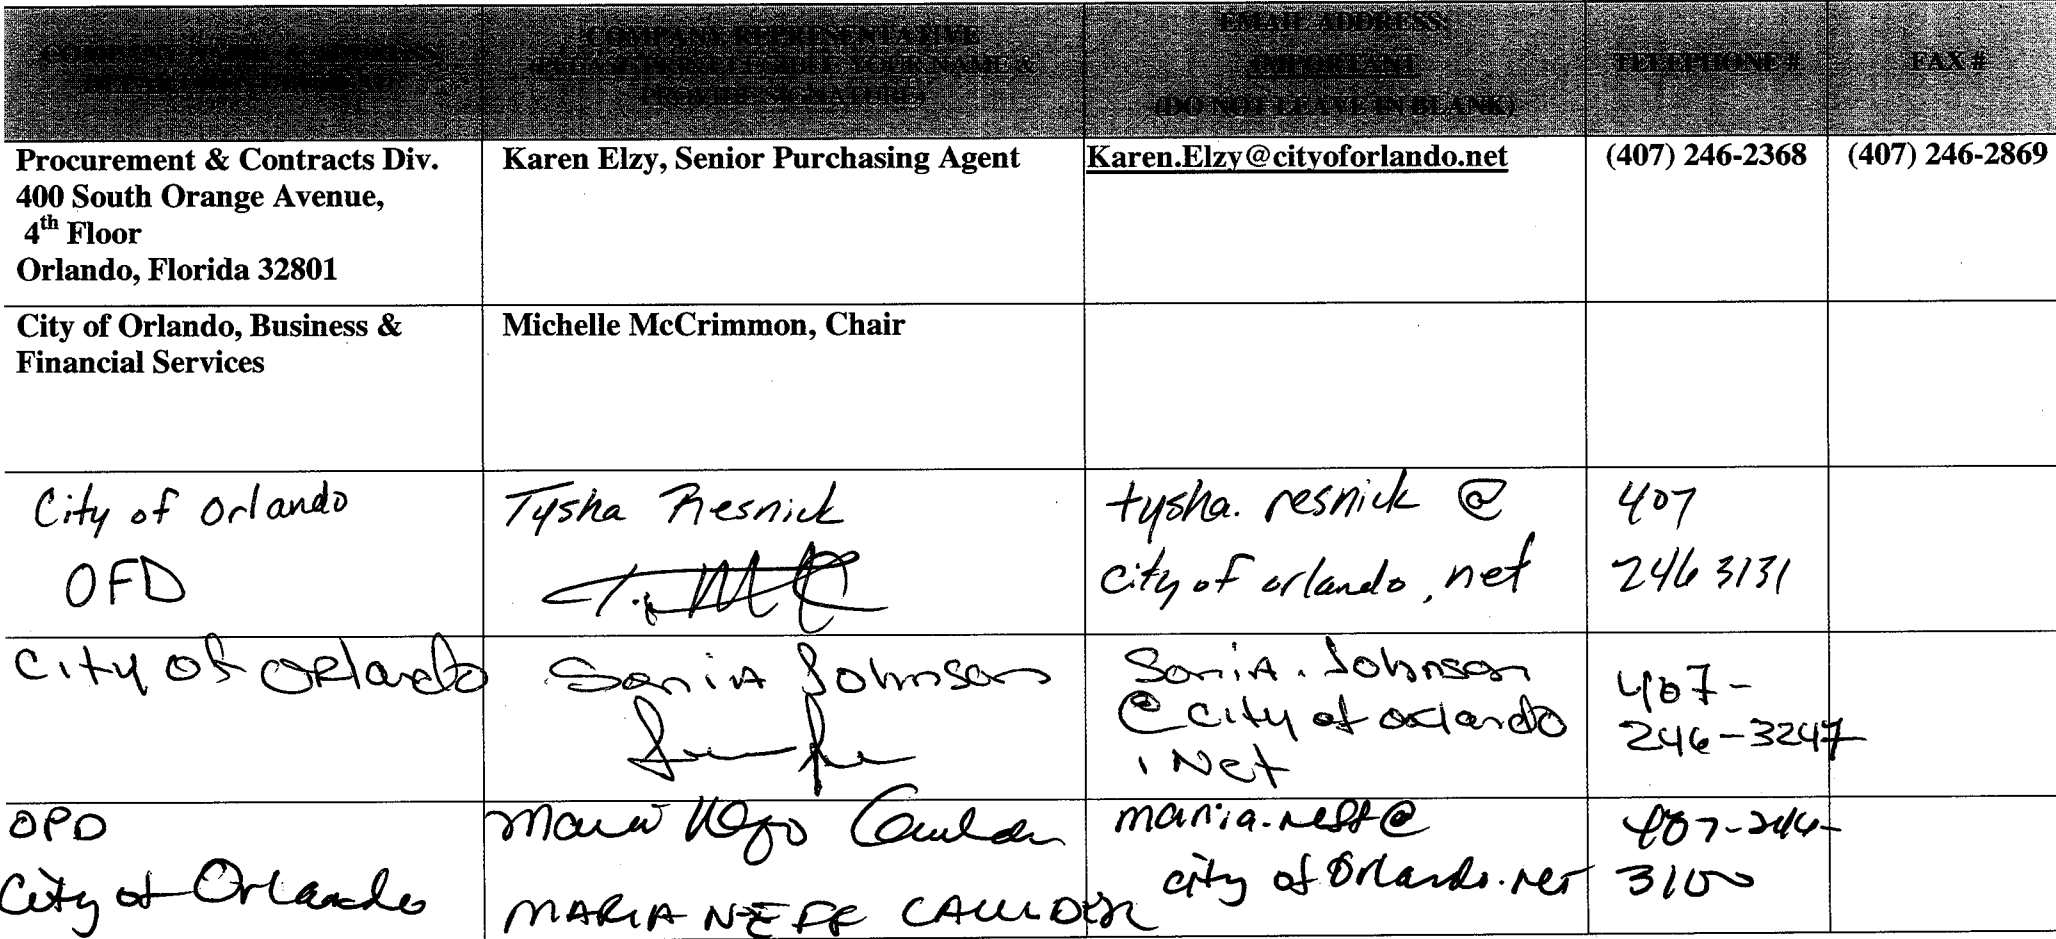 COMPANY NAME & ADDRESS
COMPANY REPRESENTATIVE
(PLEASE PRINT LEGIBLY YOUR NAME &
PROVIDE SIGNATURE)
EMAIL ADDRESS:
IMPORTANT
(DO NOT LEAVE IN BLANK)
TELEPHONE #
FAX #
Procurement & Contracts Div.
400 South Orange Avenue,
4th Floor
Orlando, Florida 32801
Karen Elzy, Senior Purchasing Agent
Karen.Elzy@cityoforlando.net
(407) 246-2368
(407) 246-2869
City of Orlando, Business &
Financial Services
Michelle McCrimmon, Chair
City of Orlando
OFD
Tysha Resnick
tysha.resnick @
city of orlando.net
407
246 3131
City of Orlando
Sonia Johnson
Sonia.Johnson
@ city of orlando
.Net
407-
246-3247
OPD
City of Orlando
MARIA NEFF CAULDER
maria.neff@
city of Orlando.net
407-246-
3100